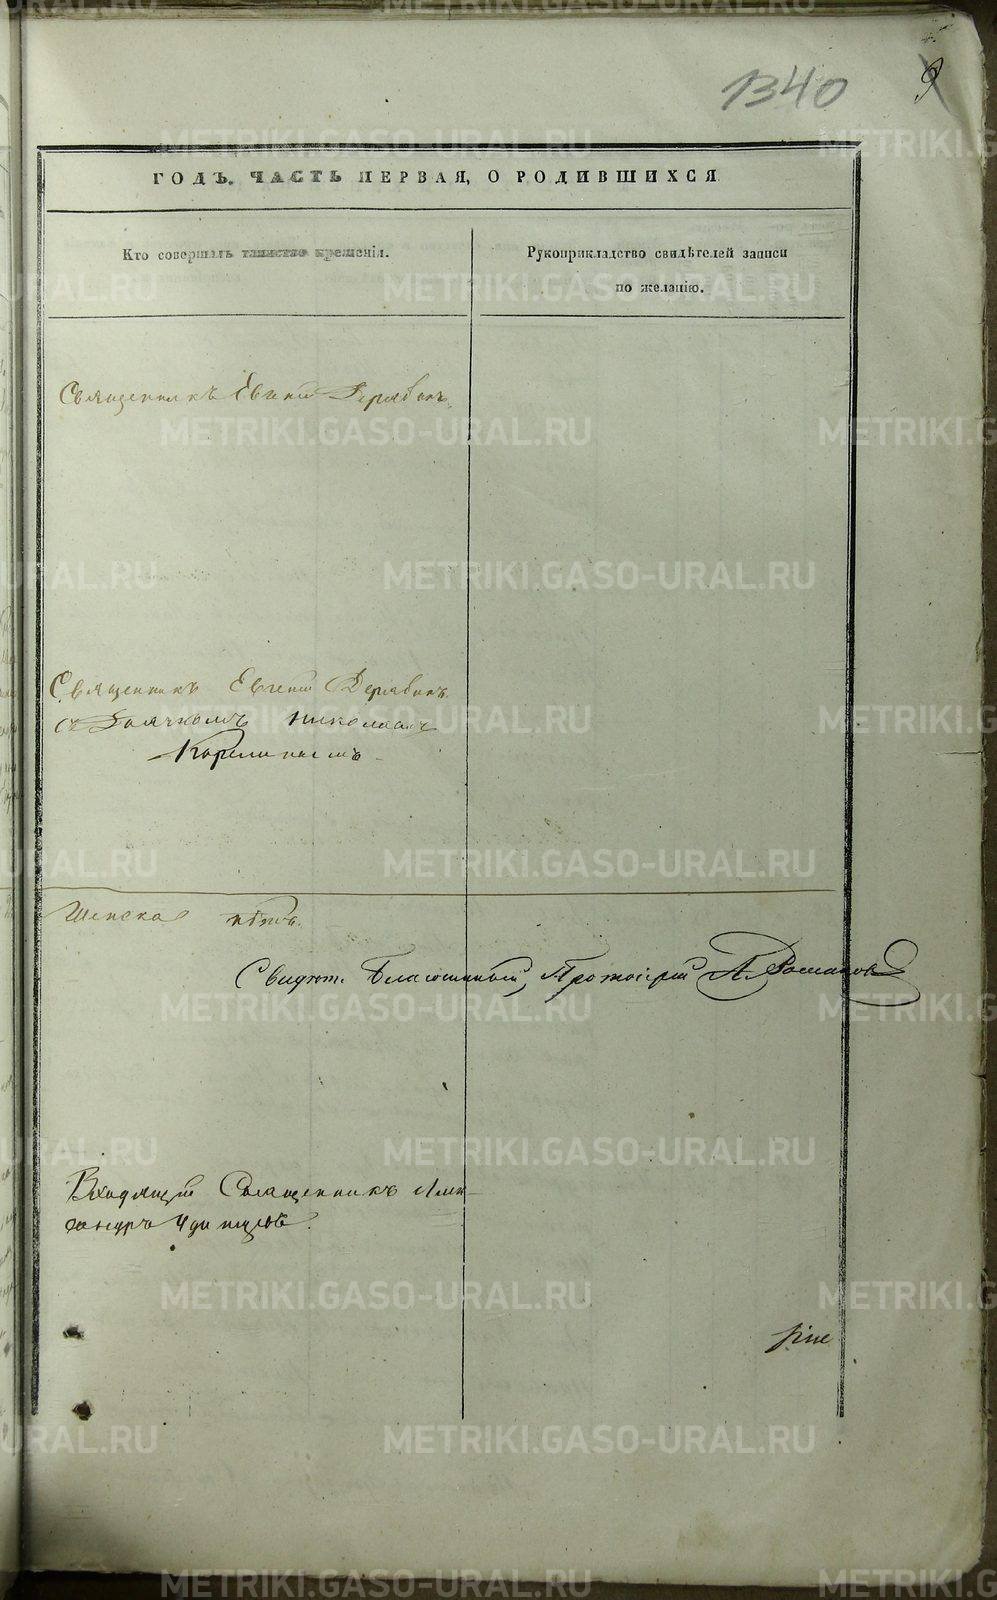 1340
9
ГОДЪ. ЧАСТЬ ПЕРВАЯ, О РОДИВШИХСЯ
Кто совершалъ таинство крещенія.
Рукоприкладство свидѣтелей записи
по желанію.
Священникъ Евгеній Дерябинъ.
Священникъ Евгеній Дерябинъ
съ Дьячкомъ Николаемъ
женска пола
Свидѣт. Благочинный, Протоіерей А. Романовъ
Входящій Священникъ Алек-
сандръ
fine
METRIKI.GASO-URAL.RU